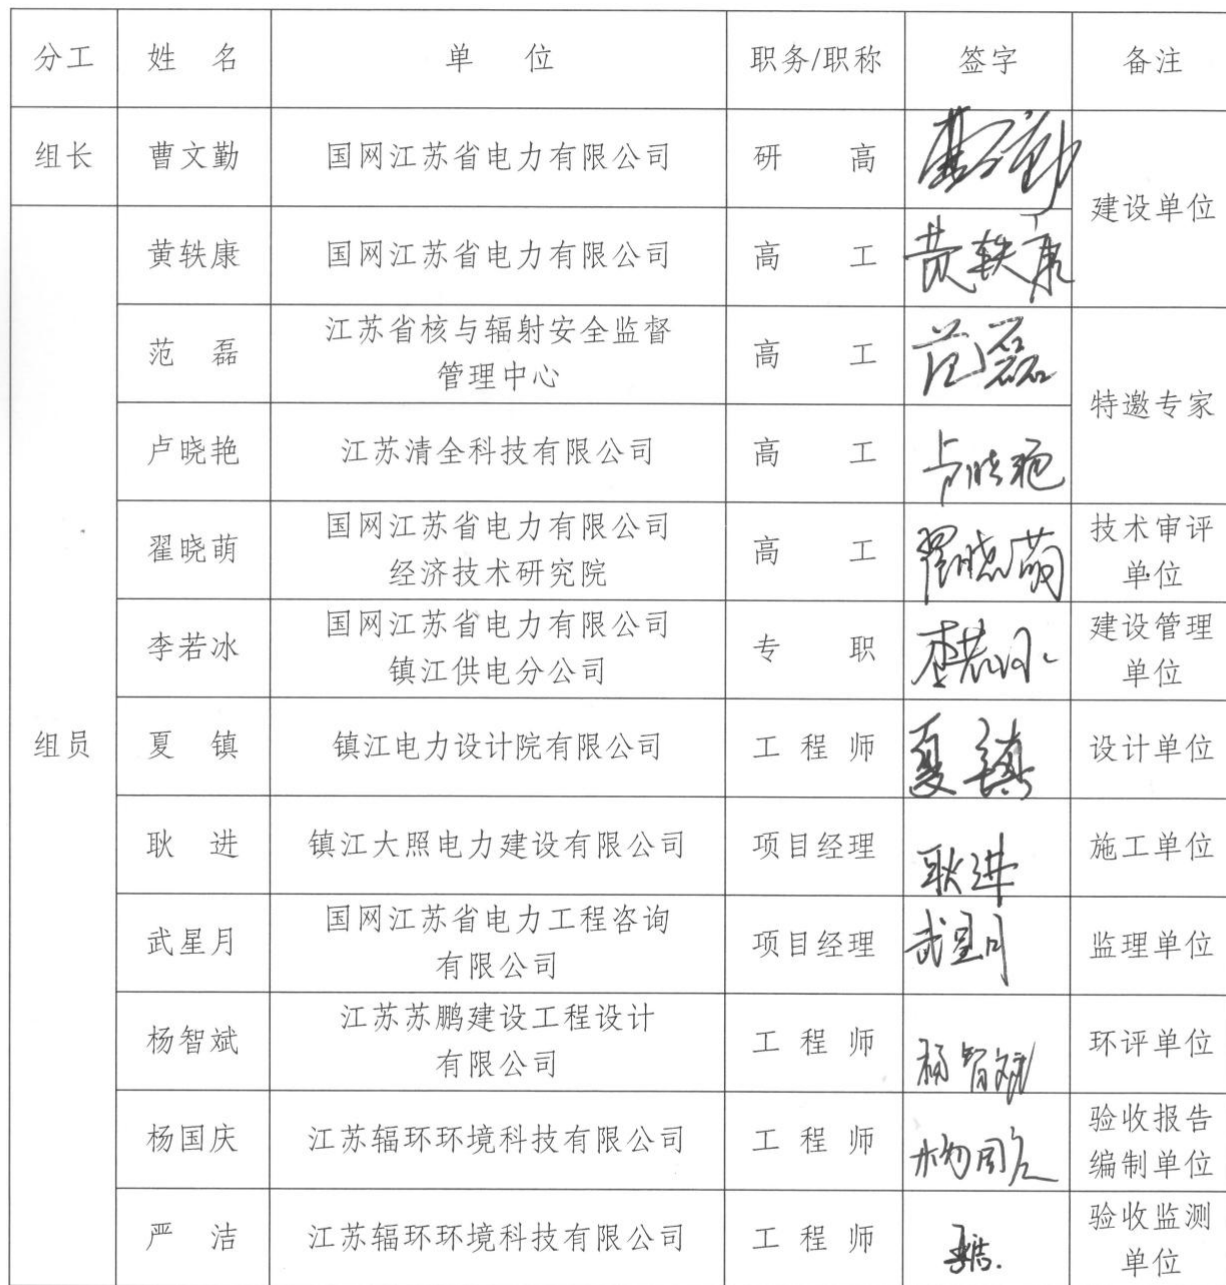 分工 姓 名 单 位 职务/职称 签字 备注
组长 曹文勤 国网江苏省电力有限公司 研 高 曹文勤 建设单位
组员 黄轶康 国网江苏省电力有限公司 高 工 黄轶康
范 磊 江苏省核与辐射安全监督
管理中心 高 工 范磊 特邀专家
卢晓艳 江苏清全科技有限公司 高 工 卢晓艳
翟晓萌 国网江苏省电力有限公司
经济技术研究院 高 工 翟晓萌 技术审评
单位
李若冰 国网江苏省电力有限公司
镇江供电分公司 专 职 李若冰 建设管理
单位
夏 镇 镇江电力设计院有限公司 工 程 师 夏镇 设计单位
耿 进 镇江大照电力建设有限公司 项目经理 耿进 施工单位
武星月 国网江苏省电力工程咨询
有限公司 项目经理 武星月 监理单位
杨智斌 江苏苏鹏建设工程设计
有限公司 工 程 师 杨智斌 环评单位
杨国庆 江苏辐环环境科技有限公司 工 程 师 杨国庆 验收报告
编制单位
严 洁 江苏辐环环境科技有限公司 工 程 师 严洁 验收监测
单位